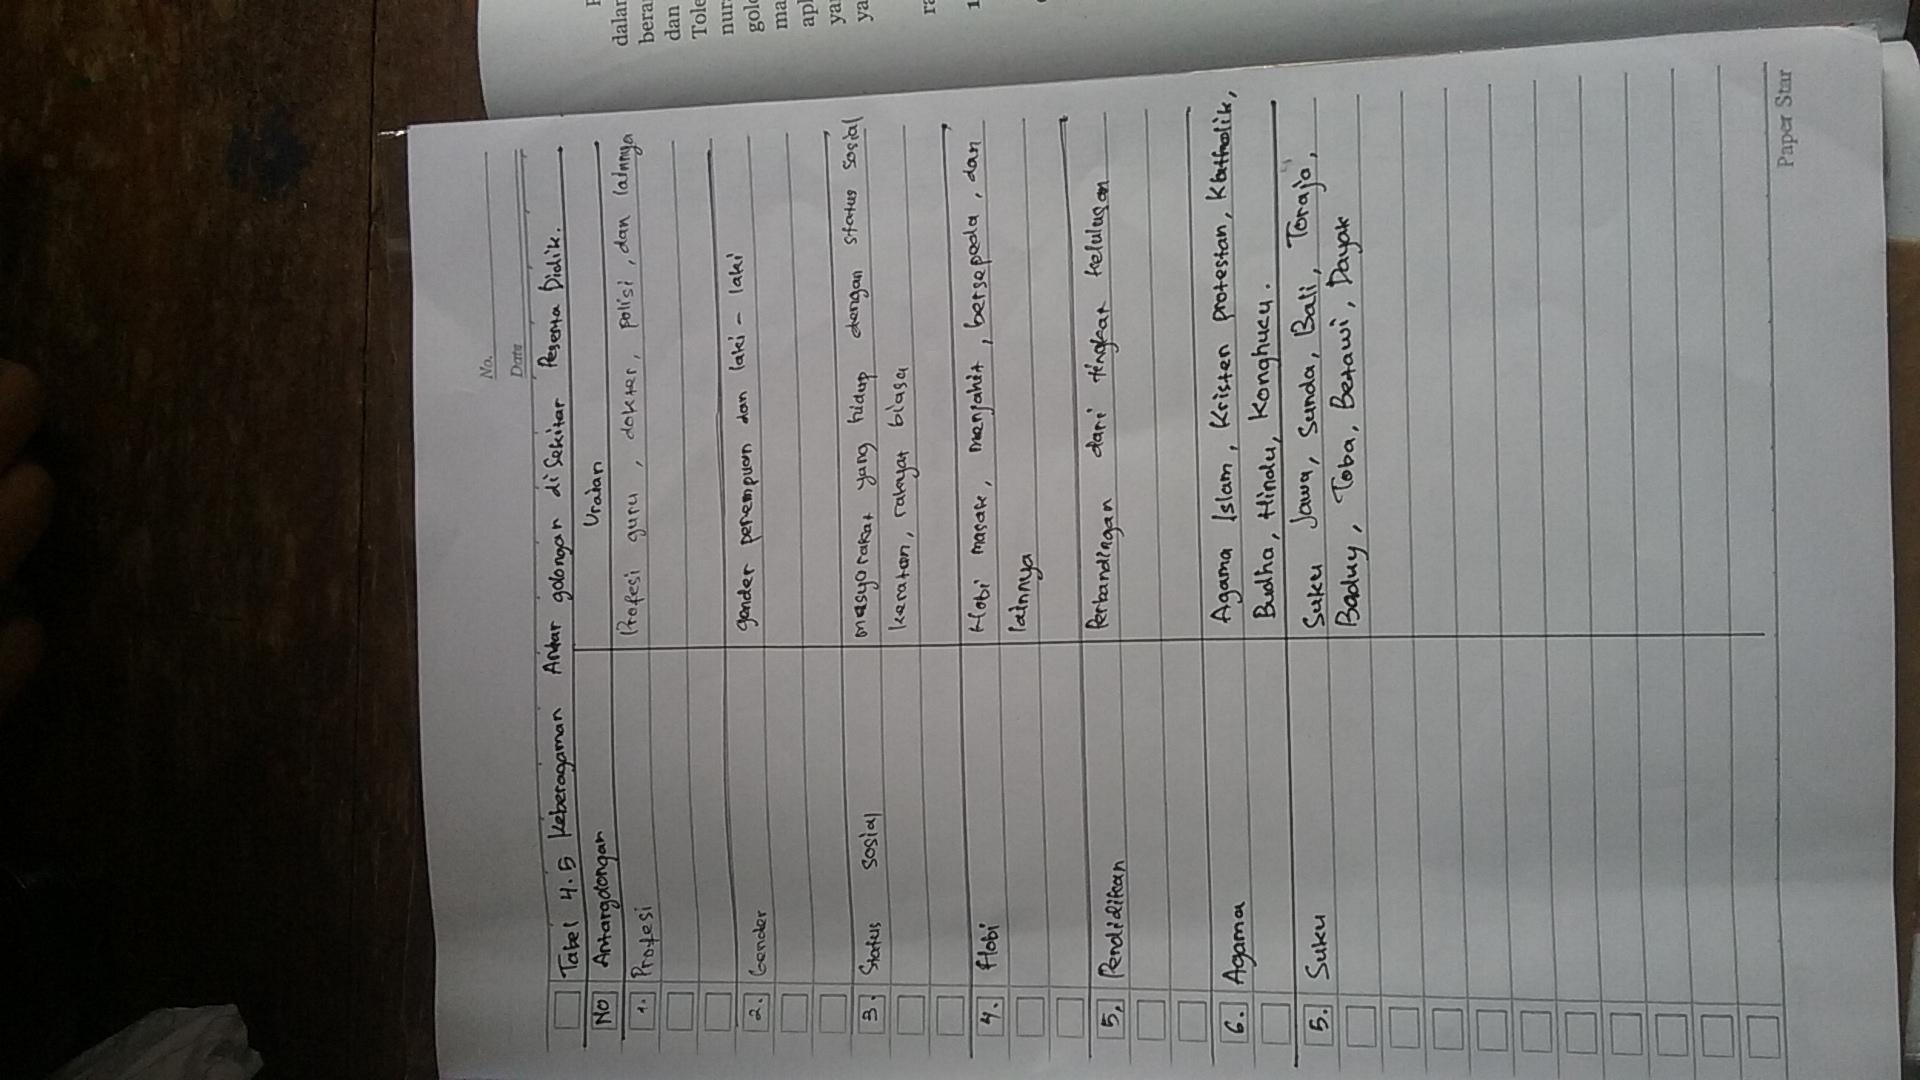 No.
Date
Tabel 4.5 Keberagaman Antar golongan di Sekitar Peserta Didik.
No Antargolongan Uraian
1. Profesi Profesi guru, dokter, polisi, dan lainnya
2. Gender gender perempuan dan laki - laki
3. Status sosial masyarakat yang hidup dengan status sosial
keraton, rakyat biasa
4. Hobi Hobi masak, menjahit, bersepeda, dan
lainnya
5. Pendidikan Perbandingan dari tingkat kelulusan
6. Agama Agama Islam, Kristen protestan, Khatholik,
Budha, Hindu, Konghucu.
5. Suku Suku Jawa, Sunda, Bali, Toraja,
Baduy, Toba, Betawi, Dayak
Paper Star
dalam
bera
dan
Tole
nura
golo
ma
apl
ya
ya
ra
1